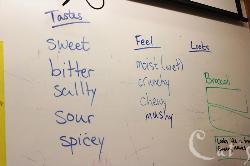 Tastes
sweet
bitter
sallty
sour
spicey
Feel
moist (wet)
crunchy
chewy
mushy
Looks
Broccoli